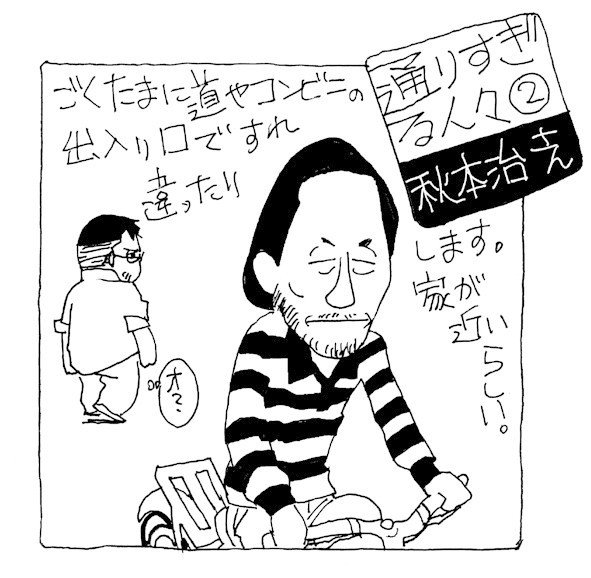 通りすぎ
る人々②
秋本治さん
ごくたまに道やコンビニの
出入り口ですれ
違ったり
します。
家が
近いらしい。
オ?